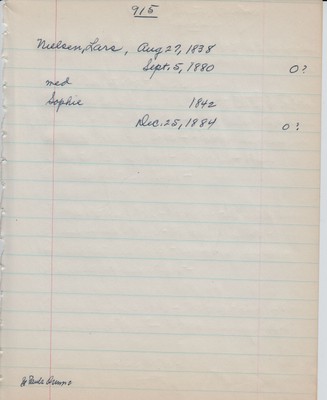 915
Nielsen, Lars, Aug 27, 1838
Sept. 5, 1880 0?
med
Sophie 1842
Dec. 25, 1884 0?